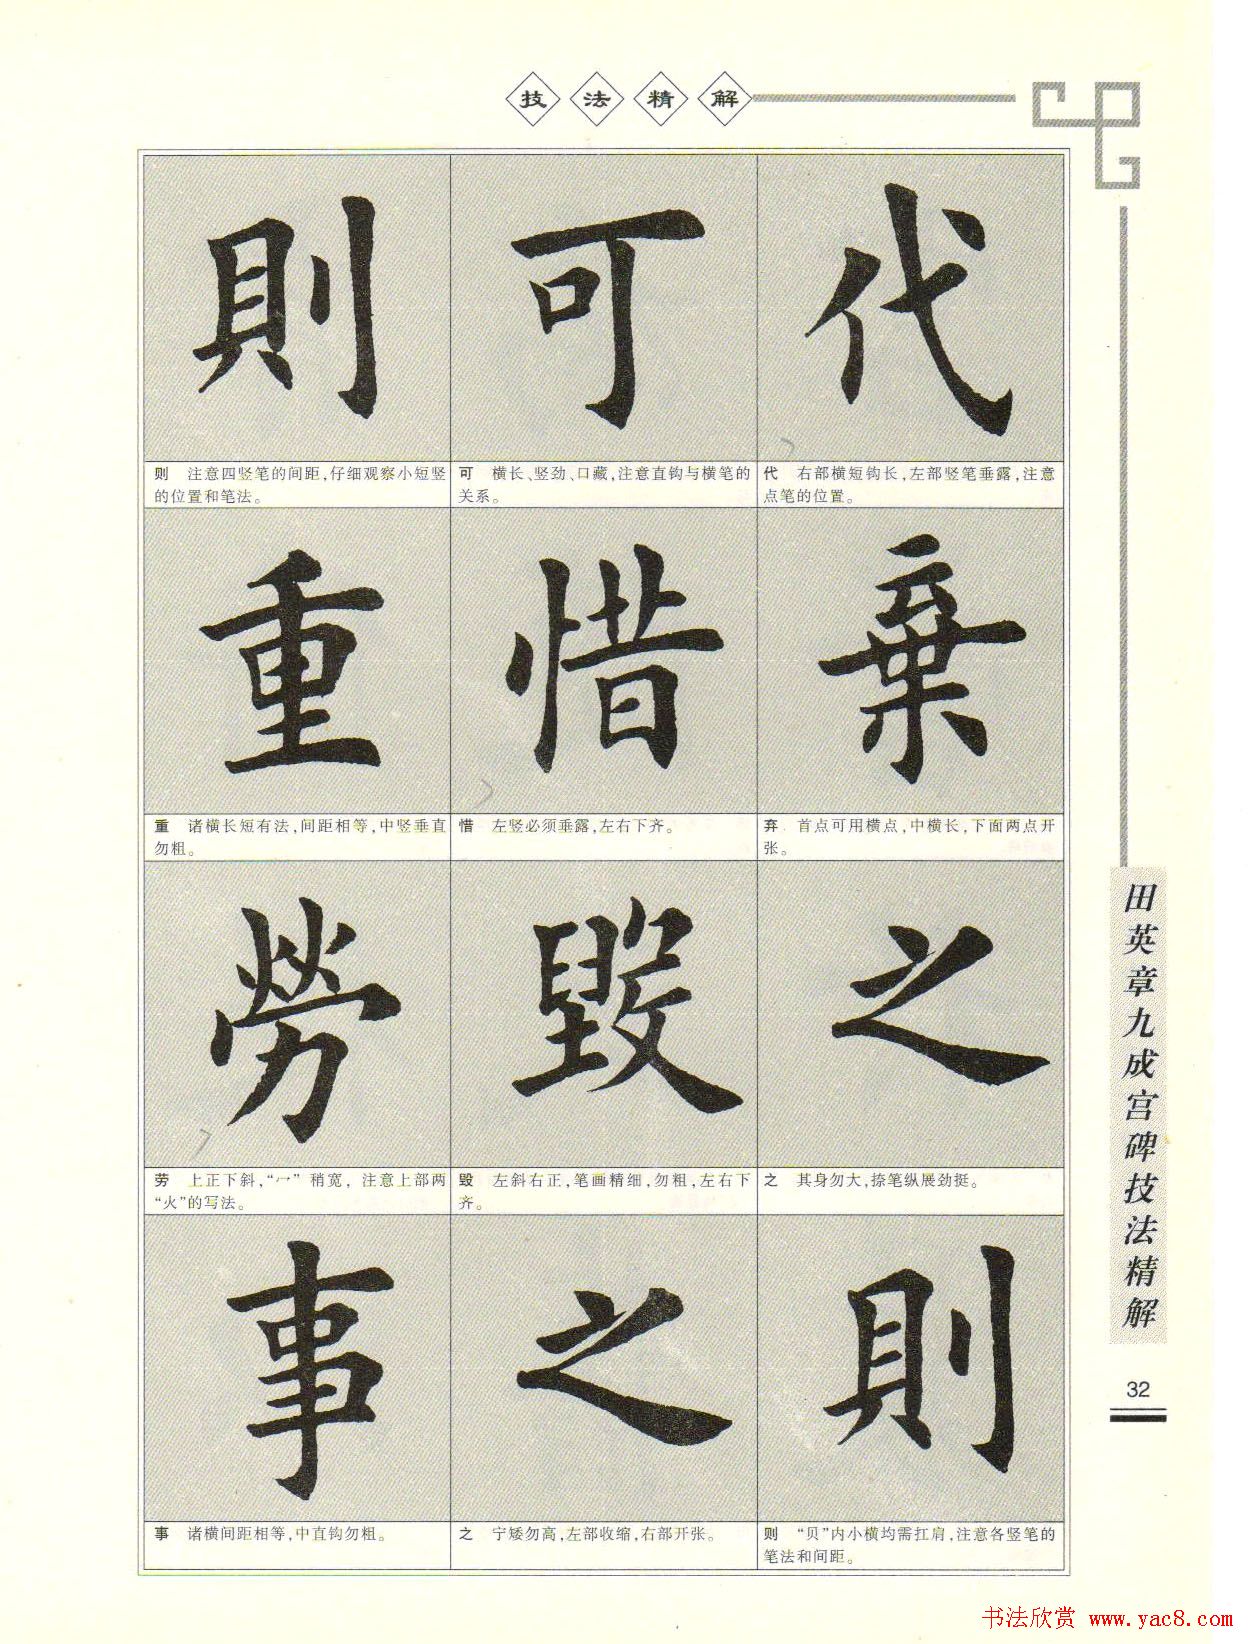 技法精解
則 可 代
则 注意四竖笔的间距,仔细观察小短竖
的位置和笔法。
可 横长、竖劲、口藏,注意直钩与横笔的
关系。
代 右部横短钩长,左部竖笔垂露,注意
点笔的位置。
重 惜 棄
重 诸横长短有法,间距相等,中竖垂直
勿粗。
惜 左竖必须垂露,左右下齐。
弃 首点可用横点,中横长,下面两点开
张。
勞 毀 之
劳 上正下斜,“冖”稍宽,注意上部两
“火”的写法。
毁 左斜右正,笔画精细,勿粗,左右下
齐。
之 其身勿大,捺笔纵展劲挺。
事 之 則
事 诸横间距相等,中直钩勿粗。
之 宁矮勿高,左部收缩,右部开张。
则 “贝”内小横均需扛肩,注意各竖笔的
笔法和间距。
田英章九成宫碑技法精解
32
书法欣赏 www.yac8.com